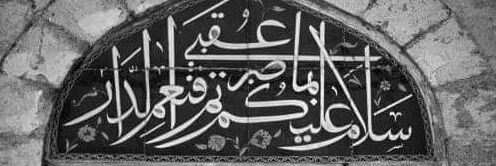 سلام علیکم بما صبرتم فنعم عقبی الدار